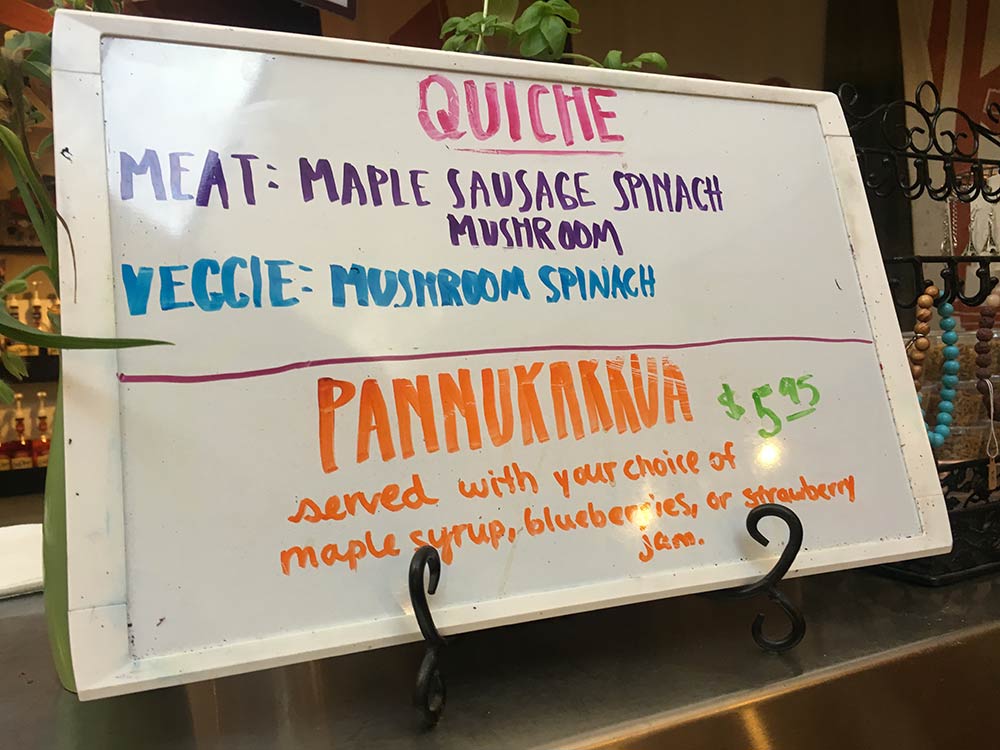 QUICHE
MEAT: MAPLE SAUSAGE SPINACH
MUSHROOM
VEGGIE: MUSHROOM SPINACH
PANNUKAKKUA $5.95
served with your choice of
maple syrup, blueberries, or strawberry
jam.